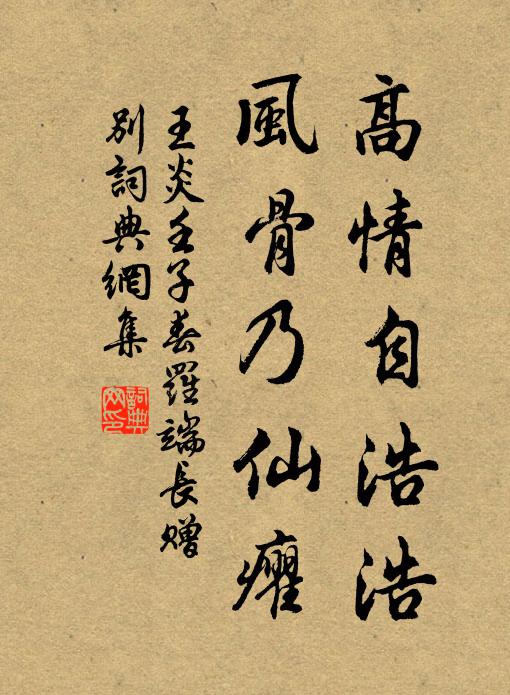 高情自浩浩
風骨乃仙癯
王炎壬子春羅端長贈
別詞典網集
詞典
网印